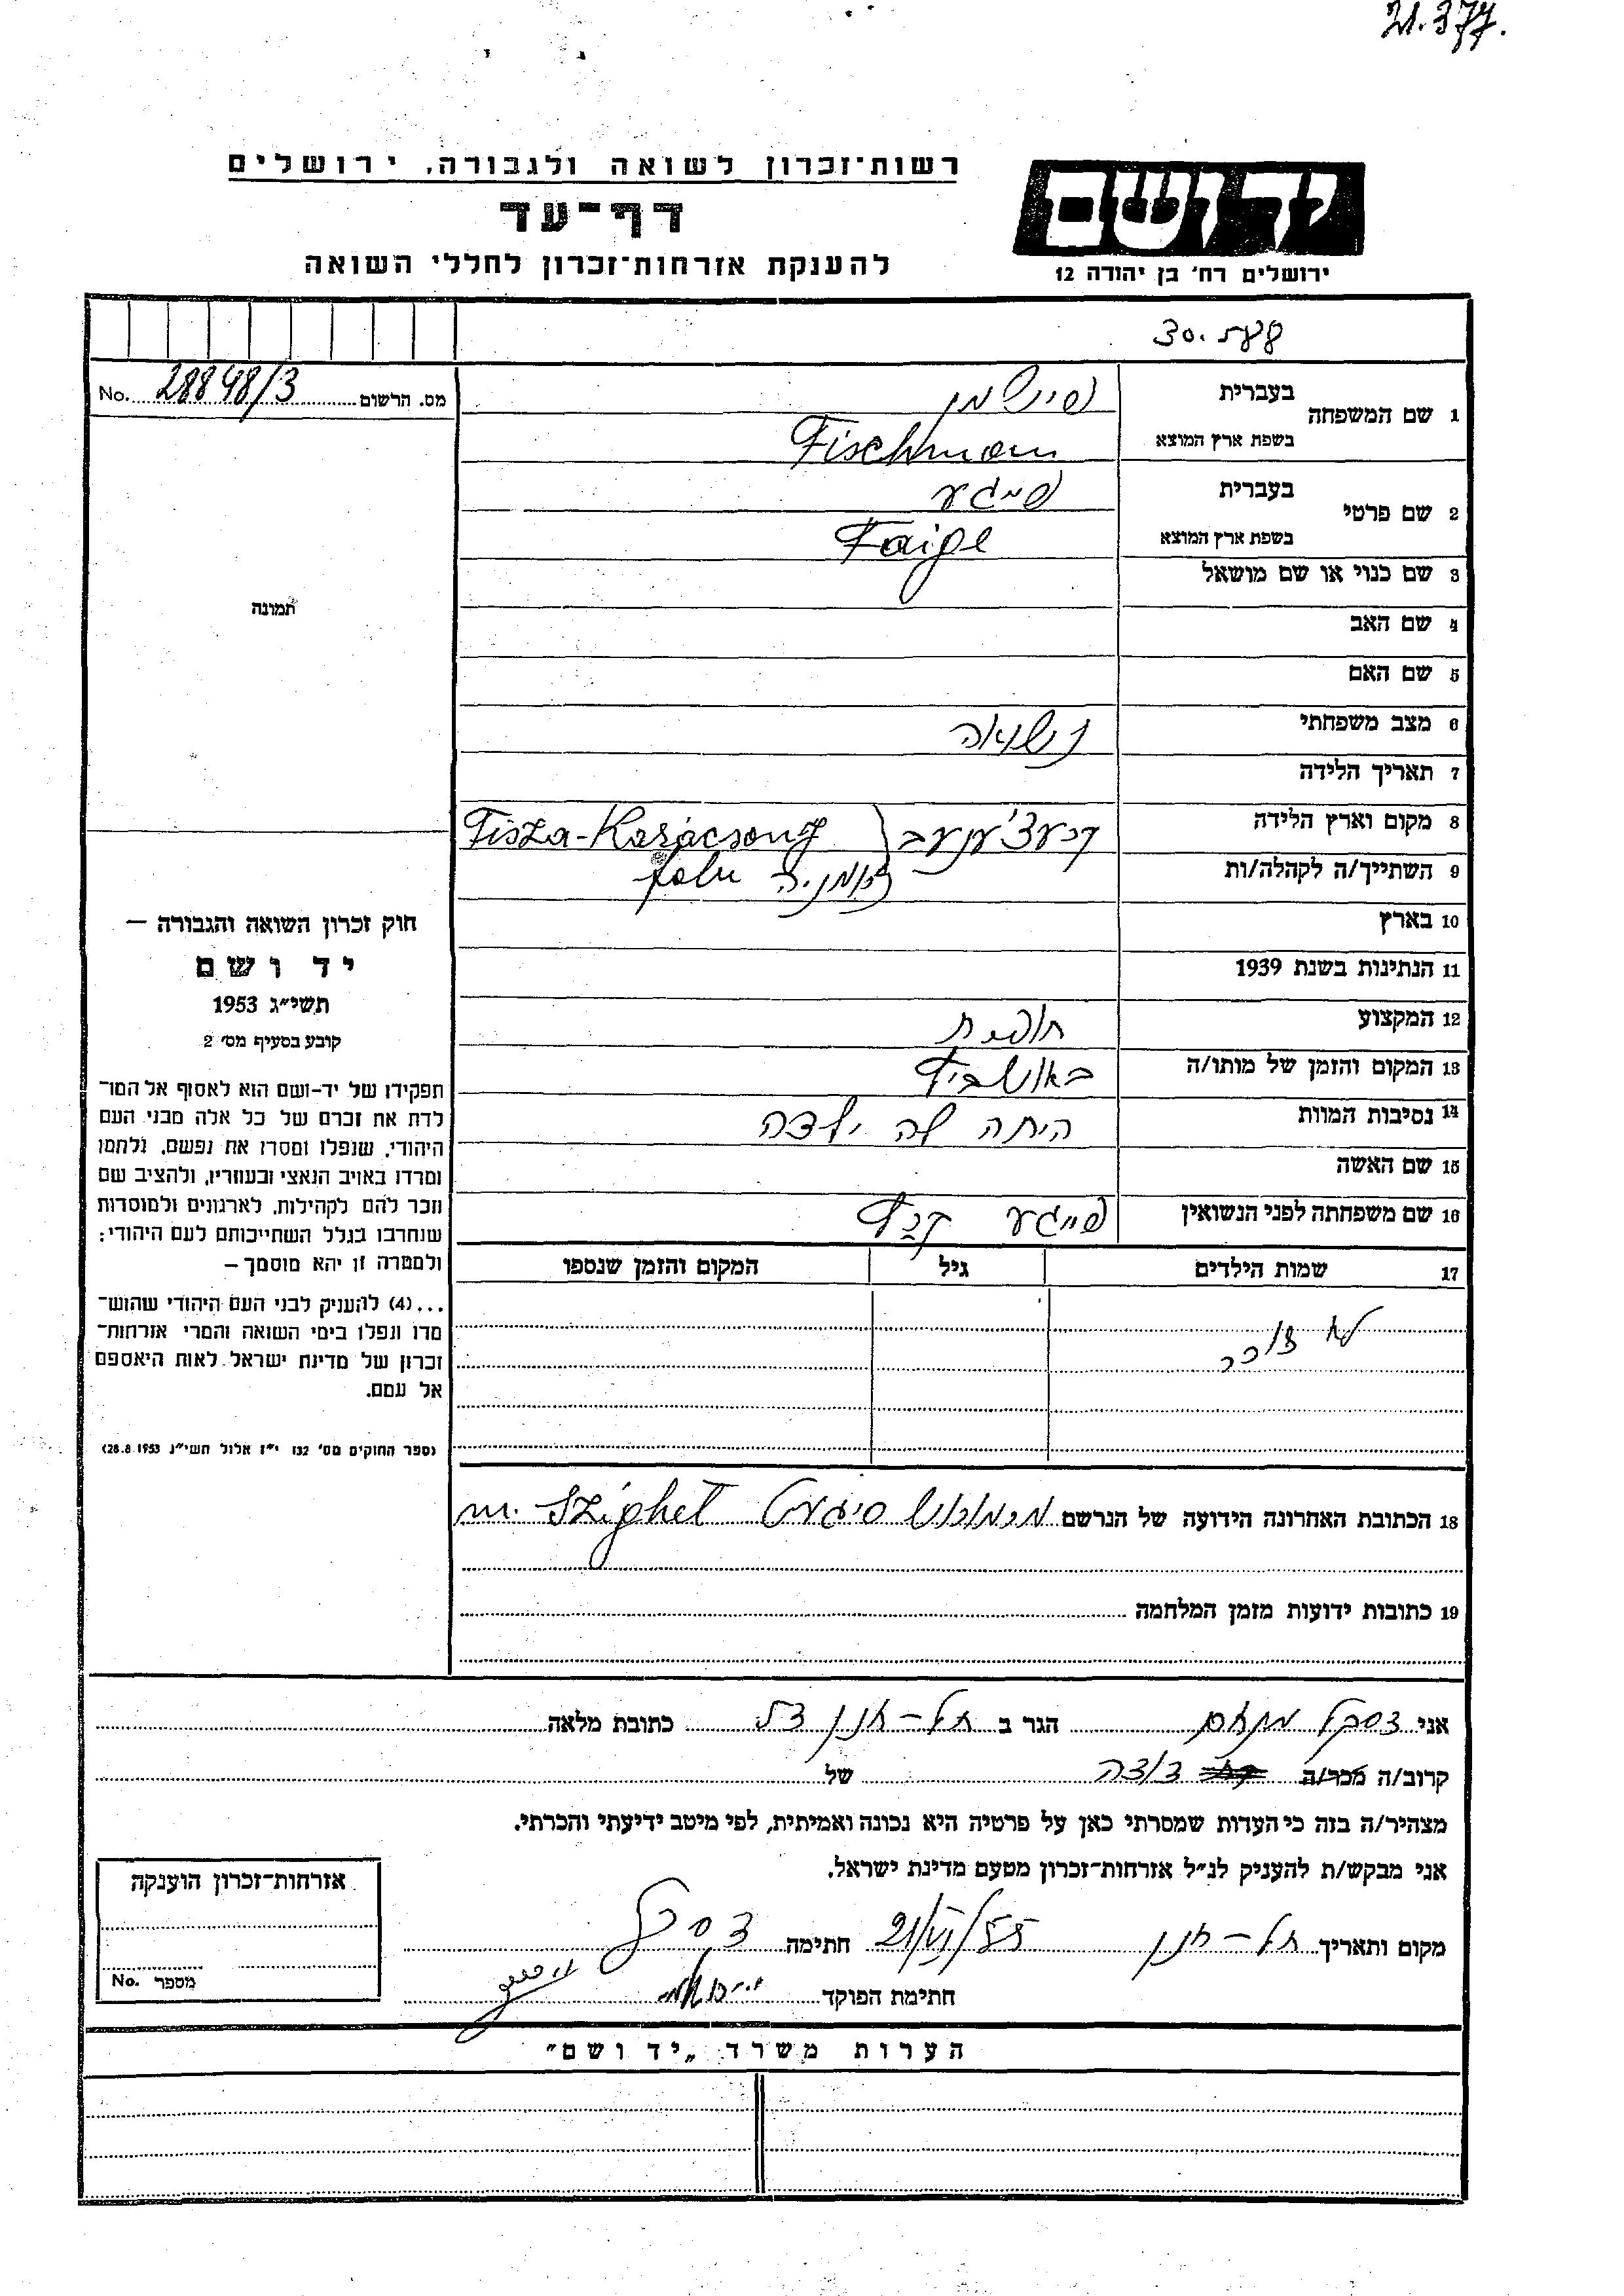 21.377.
רשות־זכרון לשואה ולגבורה, ירושלים
דף־עד
להענקת אזרחות־זכרון לחללי השואה
יד ושם
ירושלים רח' בן יהודה 12
No. 28848/3 מס. הרשום
1 שם המשפחה
בעברית פישמן
בשפת ארץ המוצא Fischman
2 שם פרטי
בעברית פייגע
בשפת ארץ המוצא Faige
3 שם כנוי או שם מושאל
4 שם האב
5 שם האם
6 מצב משפחתי נשואה
7 תאריך הלידה
8 מקום וארץ הלידה Tisza-Karácsony
9 השתייך/ה לקהלה/ות רומניה falu
10 בארץ
11 הנתינות בשנת 1939
12 המקצוע תופרת
13 המקום והזמן של מותו/ה באושביץ
14 נסיבות המוות היתה לה ילדה
15 שם האשה
16 שם משפחתה לפני הנשואין פייגע
17 שמות הילדים גיל המקום והזמן שנספו
לא זוכר
18 הכתובת האחרונה הידועה של הנרשם סיגעט m. Szighet
19 כתובות ידועות מזמן המלחמה
תמונה
חוק זכרון השואה והגבורה —
יד ושם
תשי״ג 1953
קובע בסעיף מס' 2
תפקידו של יד-ושם הוא לאסוף אל המו־
לדת את זכרם של כל אלה מבני העם
היהודי, שנפלו ומסרו את נפשם, נלחמו
ומרדו באויב הנאצי ובעוזריו, ולהציב שם
וזכר להם לקהילות, לארגונים ולמוסדות
שנחרבו בגלל השתייכותם לעם היהודי;
ולמטרה זו יהא מוסמך —
...(4) להעניק לבני העם היהודי שהוש־
מדו ונפלו בימי השואה והמרי אזרחות־
זכרון של מדינת ישראל לאות היאספם
אל עמם.
(ספר החוקים מס' 132 י״ז אלול תשי״ג 28.8.1953)
אני הגר ב תל-חנן כתובת מלאה
קרוב/ה מכר/ה דודה של
מצהיר/ה בזה כי העדות שמסרתי כאן על פרטיה היא נכונה ואמיתית, לפי מיטב ידיעתי והכרתי.
אני מבקש/ת להעניק לנ״ל אזרחות־זכרון מטעם מדינת ישראל.
מקום ותאריך תל-חנן 21/VI/55 חתימה
חתימת הפוקד
אזרחות־זכרון הוענקה
No. מספר
הערות משרד „יד ושם״